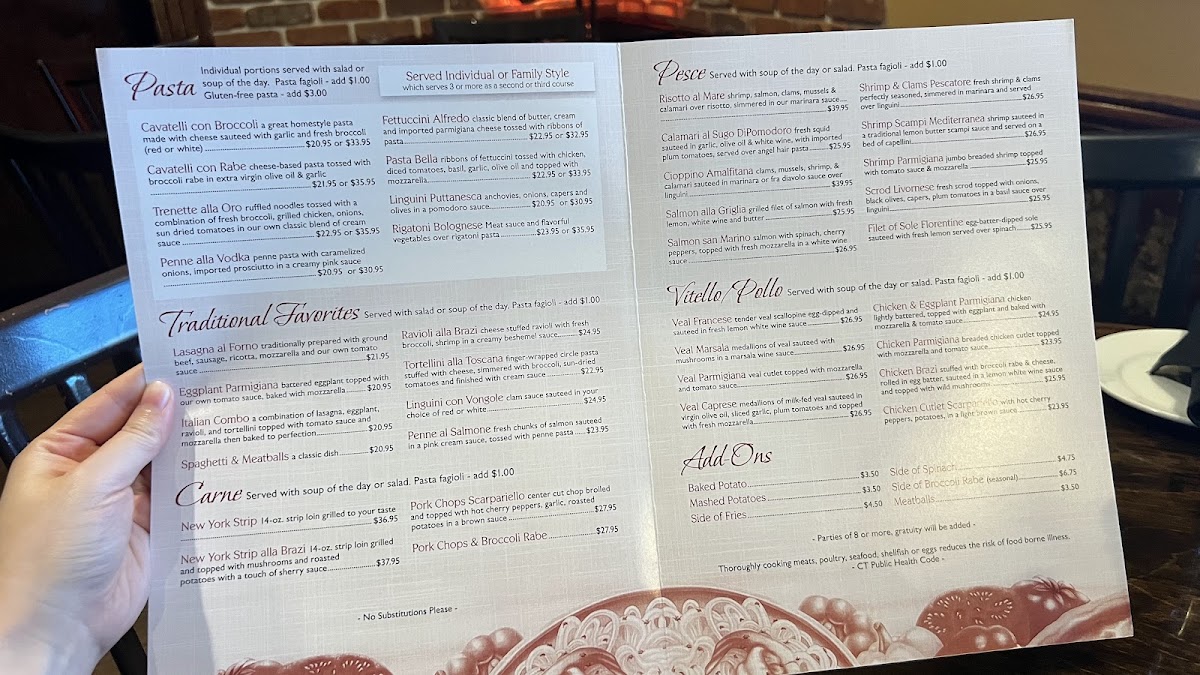 Pasta
Individual portions served with salad or
soup of the day. Pasta fagioli - add $1.00
Gluten-free pasta - add $3.00
Served Individual or Family Style
which serves 3 or more as a second or third course
Cavatelli con Broccoli a great homestyle pasta
made with cheese sauteed with garlic and fresh broccoli
(red or white)....$20.95 or $33.95
Cavatelli con Rabe cheese-based pasta tossed with
broccoli rabe in extra virgin olive oil & garlic
....$21.95 or $35.95
Trenette alla Oro ruffled noodles tossed with a
combination of fresh broccoli, grilled chicken, onions,
sun dried tomatoes in our own classic blend of cream
sauce....$22.95 or $35.95
Penne alla Vodka penne pasta with caramelized
onions, imported prosciutto in a creamy pink sauce
....$20.95 or $30.95
Fettuccini Alfredo classic blend of butter, cream
and imported parmigiana cheese tossed with ribbons of
pasta....$22.95 or $32.95
Pasta Bella ribbons of fettuccini tossed with chicken,
diced tomatoes, basil, garlic, olive oil and topped with
mozzarella....$22.95 or $33.95
Linguini Puttanesca anchovies, onions, capers and
olives in a pomodoro sauce....$20.95 or $30.95
Rigatoni Bolognese Meat sauce and flavorful
vegetables over rigatoni pasta....$23.95 or $35.95
Traditional Favorites Served with salad or soup of the day. Pasta fagioli - add $1.00
Lasagna al Forno traditionally prepared with ground
beef, sausage, ricotta, mozzarella and our own tomato
sauce....$21.95
Eggplant Parmigiana battered eggplant topped with
our own tomato sauce, baked with mozzarella....$20.95
Italian Combo a combination of lasagna, eggplant,
ravioli, and tortellini topped with tomato sauce and
mozzarella then baked to perfection....$20.95
Spaghetti & Meatballs a classic dish....$20.95
Ravioli alla Brazi cheese stuffed ravioli with fresh
broccoli, shrimp in a creamy beshemel sauce....$24.95
Tortellini alla Toscana finger-wrapped circle pasta
stuffed with cheese, simmered with broccoli, sun-dried
tomatoes and finished with cream sauce....$22.95
Linguini con Vongole clam sauce sauteed in your
choice of red or white....$24.95
Penne al Salmone fresh chunks of salmon sauteed
in a pink cream sauce, tossed with penne pasta....$23.95
Carne Served with soup of the day or salad. Pasta fagioli - add $1.00
New York Strip 14-oz. strip loin grilled to your taste
....$36.95
New York Strip alla Brazi 14-oz. strip loin grilled
and topped with mushrooms and roasted
potatoes with a touch of sherry sauce....$37.95
Pork Chops Scarpariello center cut chop broiled
and topped wth hot cherry peppers, garlic, roasted
potatoes in a brown sauce....$27.95
Pork Chops & Broccoli Rabe....$27.95
- No Substitutions Please -
Pesce Served with soup of the day or salad. Pasta fagioli - add $1.00
Risotto al Mare shrimp, salmon, clams, mussels &
calamari over risotto, simmered in our marinara sauce....
$39.95
Calamari al Sugo DiPomodoro fresh squid
sauteed in garlic, olive oil & white wine, with imported
plum tomatoes, served over angel hair pasta....$25.95
Cioppino Amalfitana clams, mussels, shrimp, &
calamari sauteed in marinara or fra diavolo sauce over
linguini....$39.95
Salmon alla Griglia grilled filet of salmon with fresh
lemon, white wine and butter....$25.95
Salmon san Marino salmon with spinach, cherry
peppers, topped with fresh mozzarella in a white wine
sauce....$26.95
Shrimp & Clams Pescatore fresh shrimp & clams
perfectly seasoned, simmered in marinara and served
over linguini....$26.95
Shrimp Scampi Mediterranea shrimp sauteed in
a traditional lemon butter scampi sauce and served on a
bed of capellini....$26.95
Shrimp Parmigiana jumbo breaded shrimp topped
with tomato sauce & mozzarella....$25.95
Scrod Livornese fresh scrod topped with onions,
black olives, capers, plum tomatoes in a basil sauce over
linguini....$25.95
Filet of Sole Florentine egg-batter-dipped sole
sauteed with fresh lemon served over spinach....$25.95
Vitello/Pollo Served with soup of the day or salad. Pasta fagioli - add $1.00
Veal Francese tender veal scallopine egg-dipped and
sauteed in fresh lemon white wine sauce....$26.95
Veal Marsala medallions of veal sauteed with
mushrooms in a marsala wine sauce....$26.95
Veal Parmigiana veal cutlet topped with mozzarella
and tomato sauce....$26.95
Veal Caprese medallions of milk-fed veal sauteed in
virgin olive oil, sliced garlic, plum tomatoes and topped
with fresh mozzarella....$26.95
Chicken & Eggplant Parmigiana chicken
lightly battered, topped with eggplant and baked with
mozzarella & tomato sauce....$24.95
Chicken Parmigiana breaded chicken cutlet topped
with mozzarella and tomato sauce....$23.95
Chicken Brazi stuffed with broccoli rabe & cheese,
rolled in egg batter, sauteed in a lemon white wine sauce
and topped with wild mushrooms....$25.95
Chicken Cutlet Scarpariello with hot cherry
peppers, potatoes, in a light brown sauce....$23.95
Add-Ons
Baked Potato....$3.50
Mashed Potatoes....$3.50
Side of Fries....$4.50
Side of Spinach....$4.75
Side of Broccoli Rabe (seasonal)....$6.75
Meatballs....$3.50
- Parties of 8 or more, gratuity will be added -
Thoroughly cooking meats, poultry, seafood, shellfish or eggs reduces the risk of food borne illness.
- CT Public Health Code -